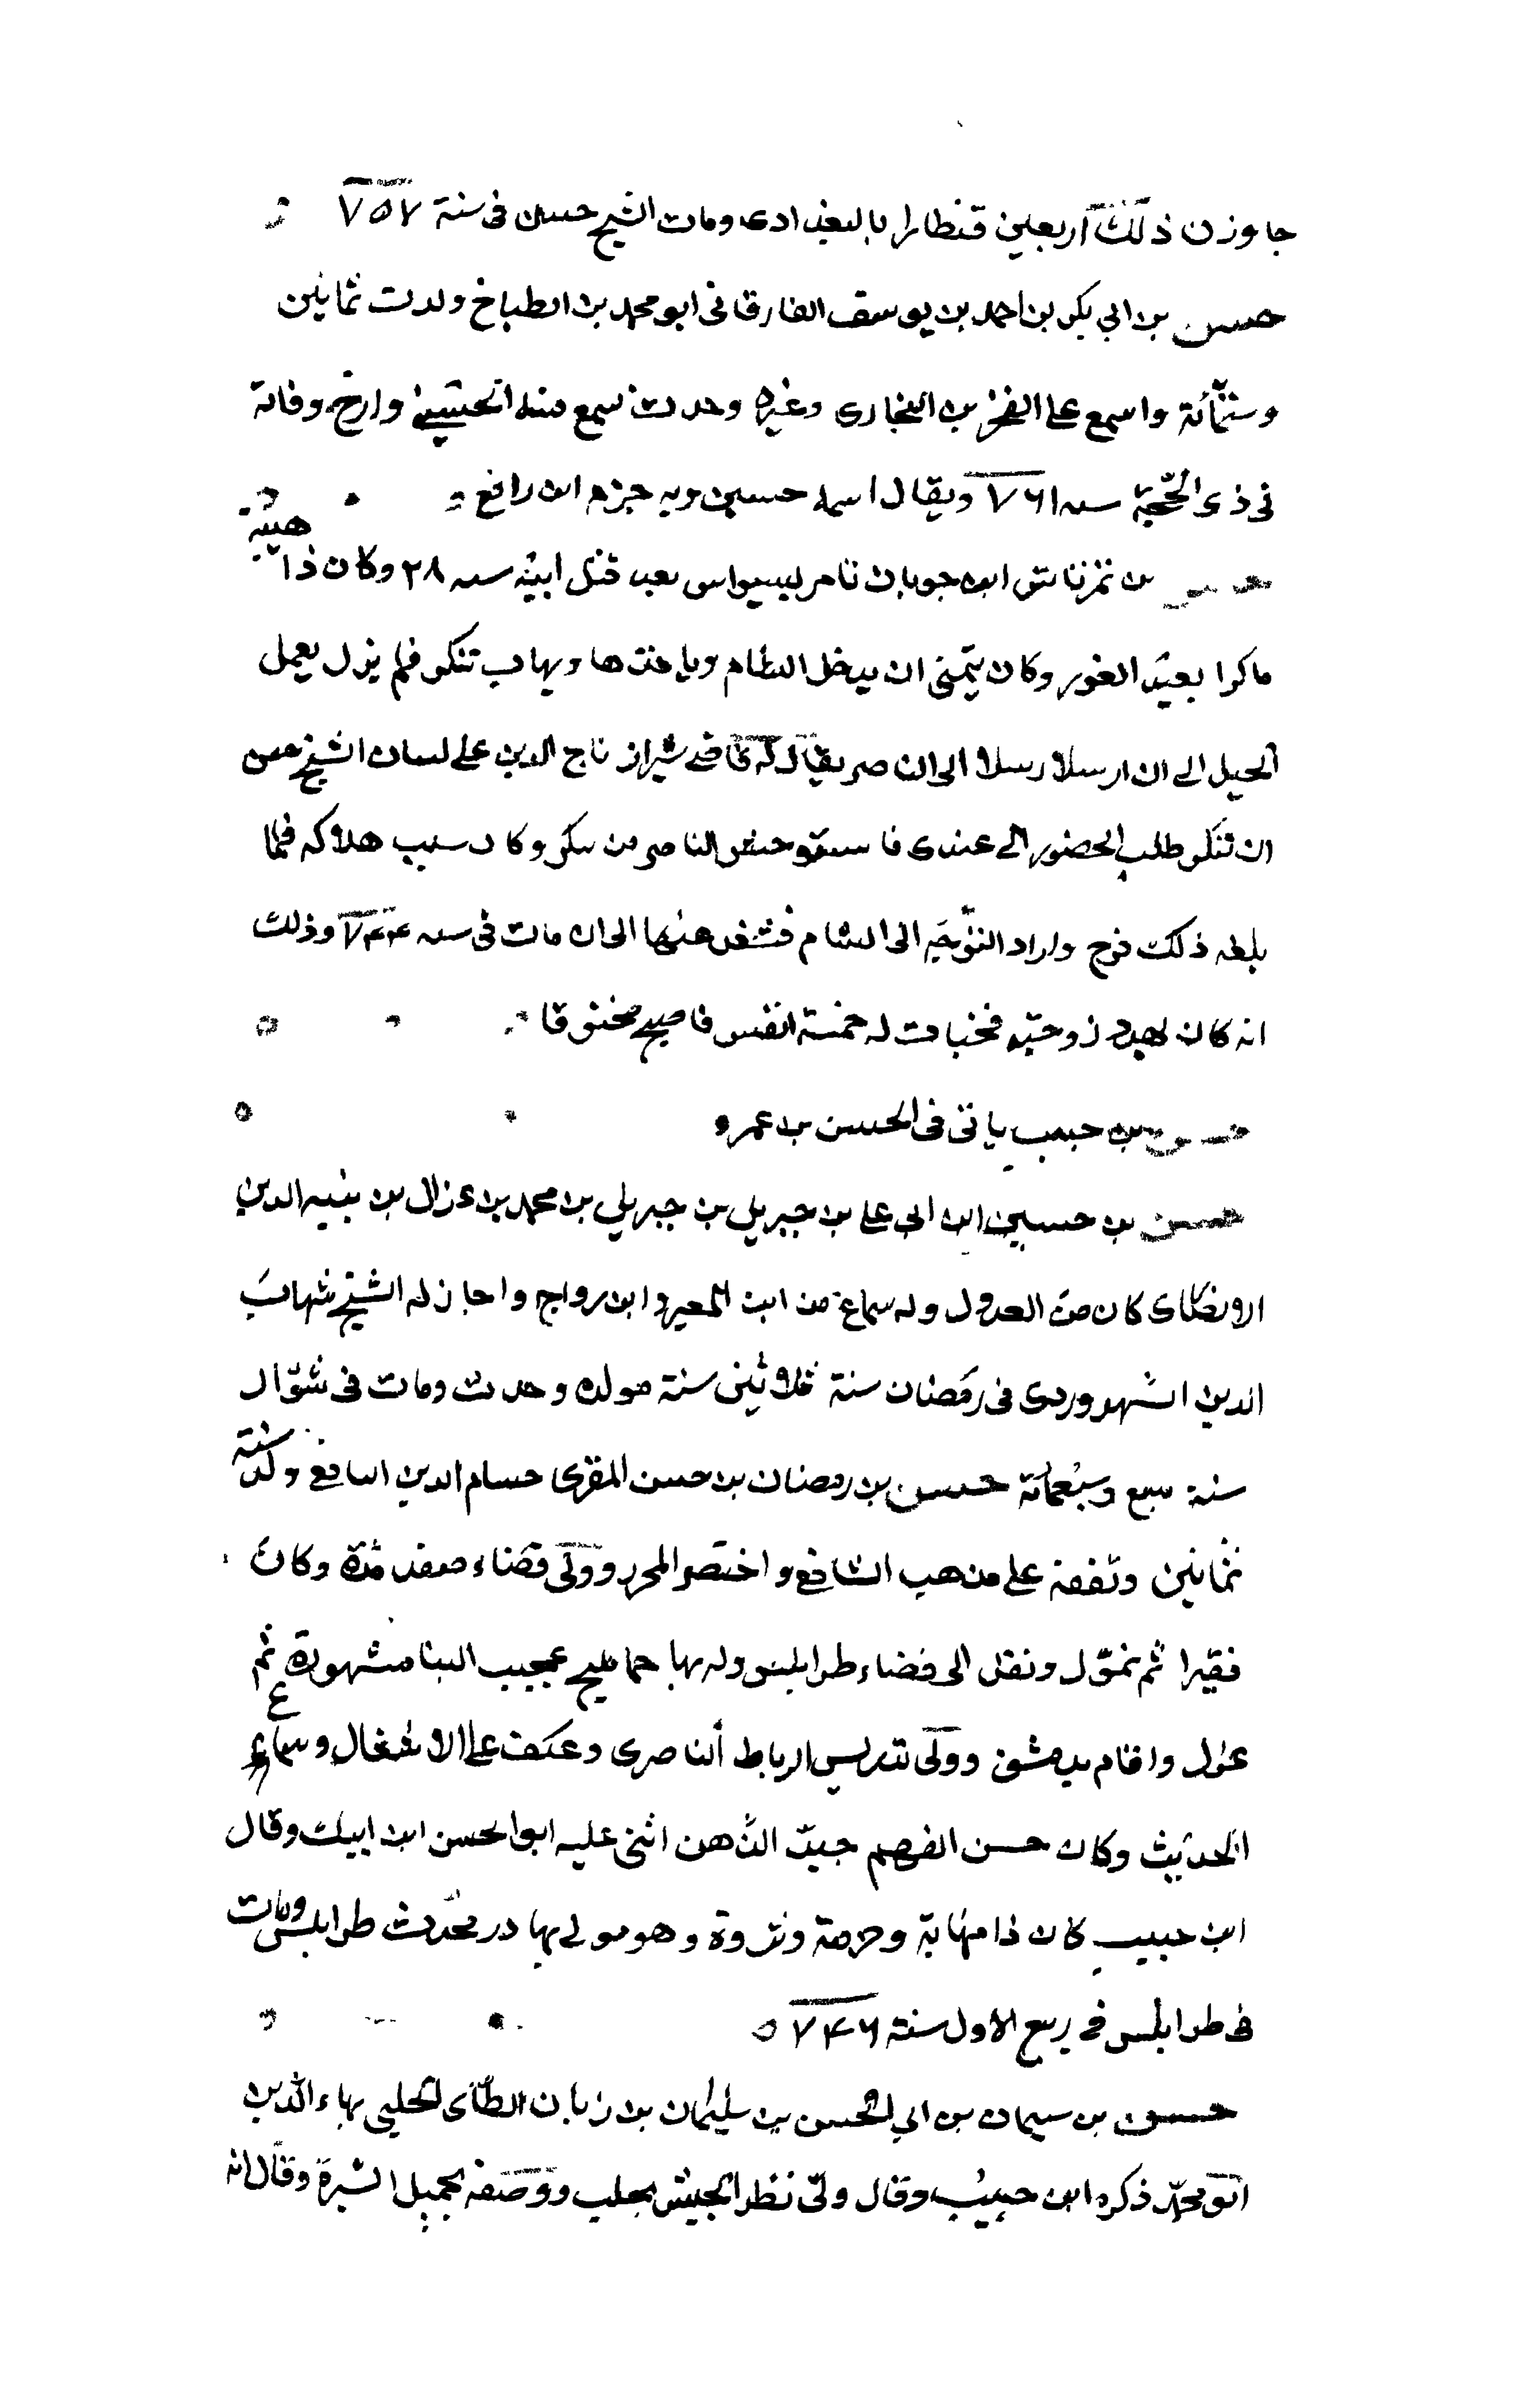 جاوزن ذلك اربعين قنطارا بالبغدادى ومات الشيخ حسن فى سنة ٧٥٧
حسن بن ابي بكر بن احمد بن يوسف الفارقانى ابو محمد بن الطباخ ولدت ثمانين
وستمائة واسمع على الفخر بن البخارى وغيره وحدث سمع منه الحسينى وارخ وفاته
فى ذى الحجة سنه ٧٦١ ويقال اسمه حسين وبه جزم ابن رافع
حسن بن تمرتاش ابن جوبان تامر بسيواس بعد قتل ابيه سنه ٢٨ وكان ذا هيئة
ماكرا بعيد الغور وكان يتمنى ان يدخل الشام وياخذها ويهاب تنكز فلم يزل يعمل
الحيل الى ان ارسلا رسلا الى الناصر يقال له قاضى شيراز تاج الدين على لسان الشيخ حسن
ان تنكز طلب الحضور الى عندى فا حنق الناصر من تنكز وكان سبب هلاكه فلما
بلغه ذلك فرح واراد التوجه الى الشام فشغل عنها الى ان مات فى سنه ٧٤٤ وذلك
انه كان يهدد زوجته فخبات له خمسة انفس فاصبح مخنوقا
حسن بن حبيب ياتى فى الحسن بن عمرو
حسن بن حسين ابن ابى على بن جبريل بن جبريل بن محمد بن عزال بن بنيه الدين
كان من العدول وله سماع من ابن المعير وابن رواج واجاز له الشيخ شهاب
الدين السهروردى فى رمضان سنة ثلاثين سنة مولده وحدث ومات فى شوال
سنة سبع وسبعمائة حسن بن رمضان بن حسن المقرى حسام الدين الشافع ولد سنة
ثمانين وتفقه على مذهب الشافع واختصر المحرر وولى قضاء صفد مدة وكان
فقيرا ثم تموّل ونقل الى قضاء طرابلس وله بها حما مليح عجيب البنا مشهورة ثم
عزل واقام بدمشق وولى تدريس الرباط الناصرى وعكف على الاشغال وسماع
الحديث وكان حسن الفهم جيد الذهن اثنى عليه ابو الحسن ابن ايبك وقال
ابن حبيب كان ذا مهابة وحرمة وثروة وهو مولى بها در محدث طرابلس ومات
فى طرابلس فى ربيع الاول سنة ٧٤٦
حسن بن سيمان بن ابي الحسن بن سليمان بن زبان الطائى الحلبى بهاء الدين
ابو محمد ذكره ابن حبيب وقال ولى نظر الجيش بحلب ووصفه بجميل السيرة وقال انه